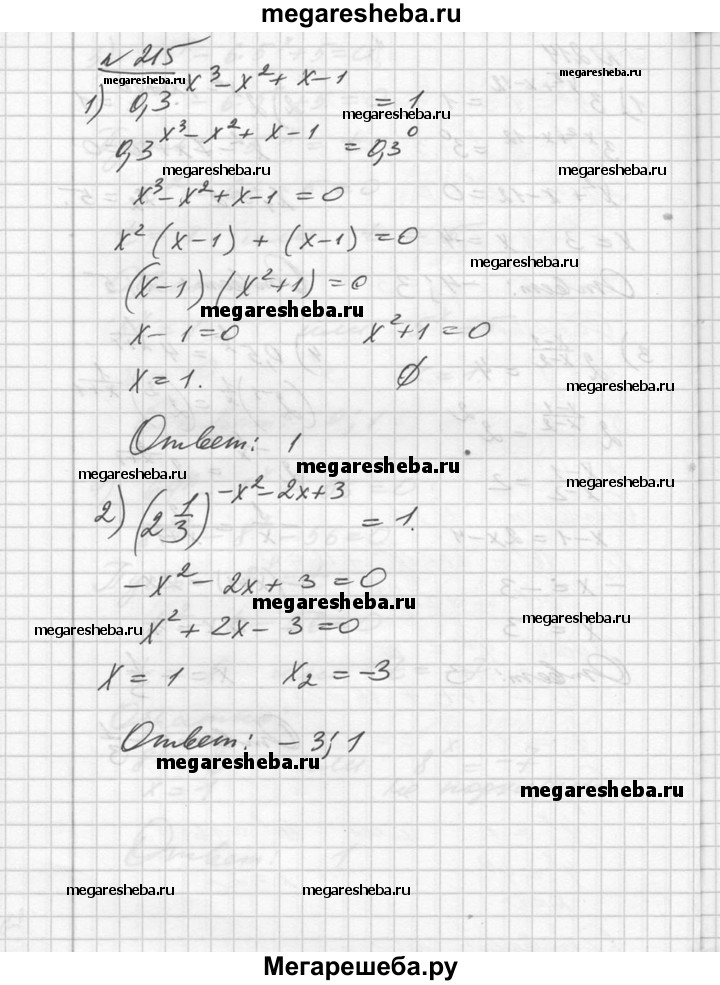 megaresheba.ru
№ 215
megaresheba.ru
1) 0,3^(x³ - x² + x - 1) = 1
megaresheba.ru
0,3^(x³ - x² + x - 1) = 0,3⁰
megaresheba.ru megaresheba.ru
x³ - x² + x - 1 = 0
x² (x - 1) + (x - 1) = 0
megaresheba.ru
(x - 1) (x² + 1) = 0
megaresheba.ru
x - 1 = 0 x² + 1 = 0
x = 1. ∅
megaresheba.ru
Ответ: 1
megaresheba.ru
megaresheba.ru megaresheba.ru
2) (2 1/3)^(-x² - 2x + 3) = 1.
-x² - 2x + 3 = 0
megaresheba.ru
megaresheba.ru
megaresheba.ru x² + 2x - 3 = 0
x = 1 x₂ = -3
Ответ: -3; 1
megaresheba.ru
megaresheba.ru
megaresheba.ru megaresheba.ru
Мегарешеба.ру